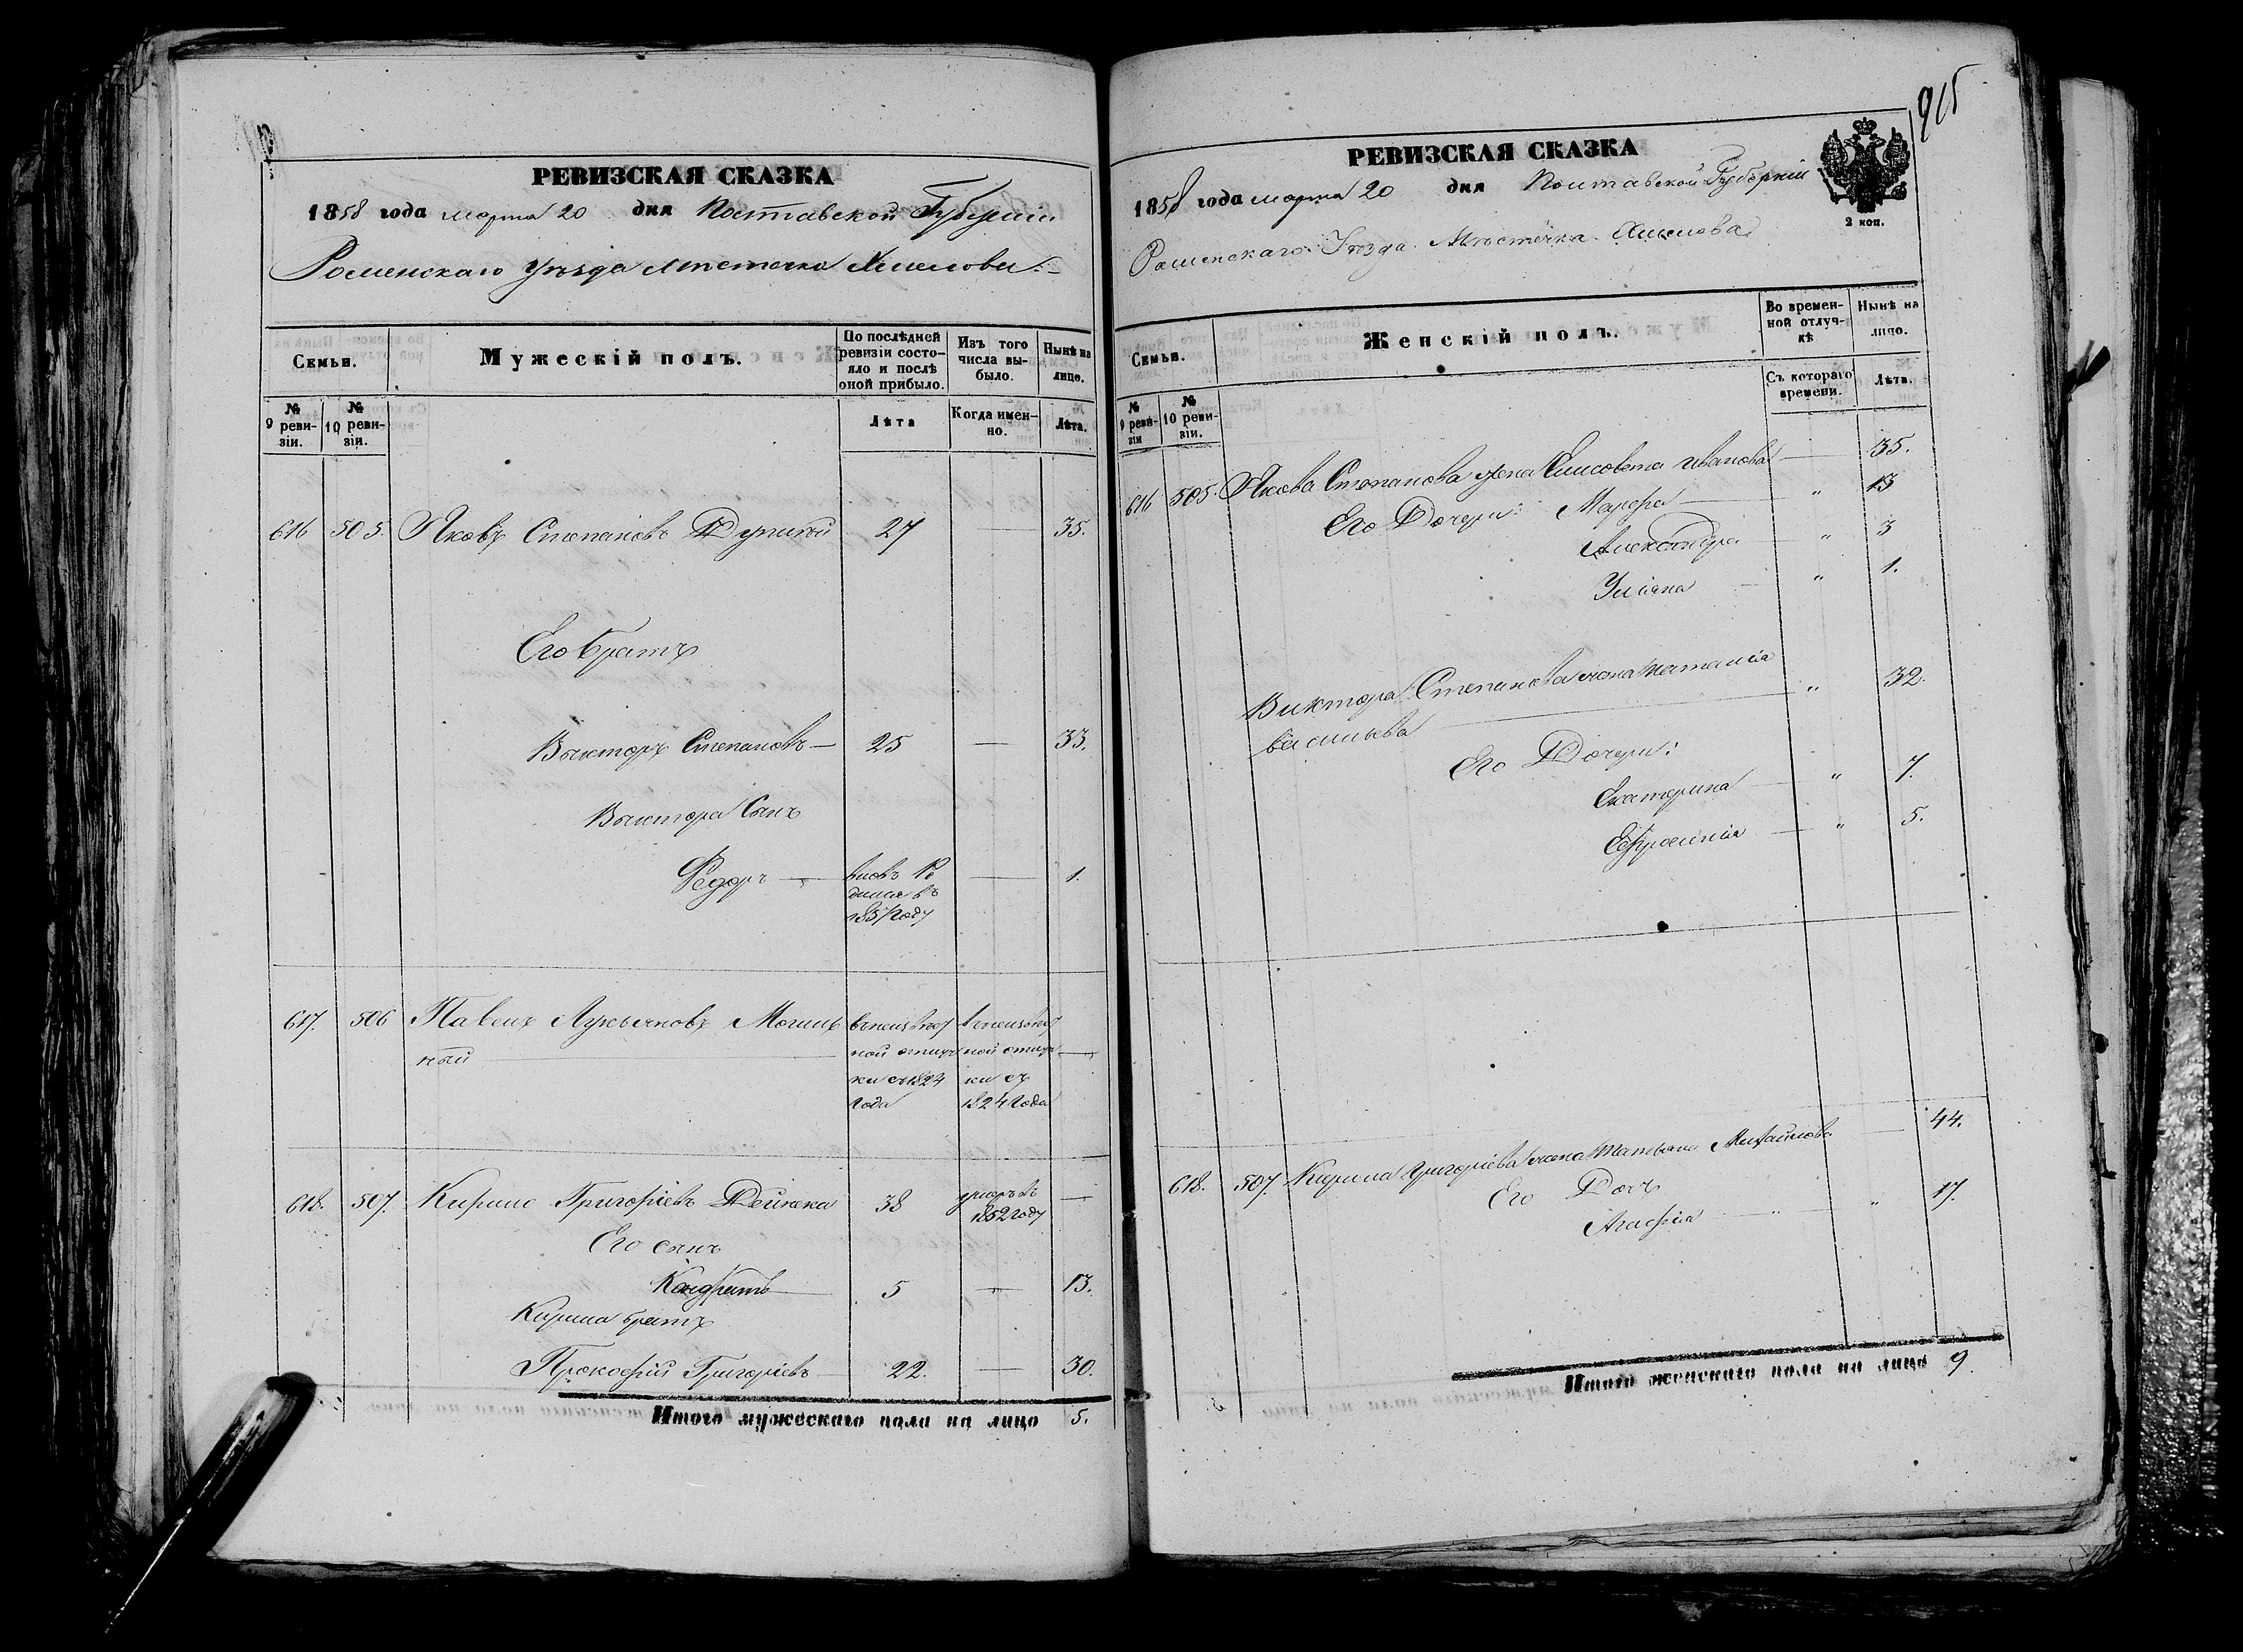 РЕВИЗСКАЯ СКАЗКА
1858 года марта 20 дня Полтавской Губерніи
Роменскаго Уѣзда Мѣстечка Хмелова
Семьи.
Мужескій полъ.
По послѣдней ревизіи состояло и послѣ оной прибыло.
Изъ того числа выбыло.
Нынѣ на лицо.
№ 9 ревизіи.
№ 10 ревизіи.
Лѣта
Когда именно.
Лѣта.
616 505. Яковъ Степановъ 27 — 35.
Его братъ
Викторъ Степановъ — 25 — 33.
Виктора Сынъ
Федоръ — вновь Ро
дился въ
1857 году — 1.
617. 506 Павелъ Лукьяновъ Могиль
ный
въ неизвѣст
ной отлуч
ки съ 1824
года
въ неизвѣст
ной отлуч
ки съ
1824 года —
618. 507. Кирило Григоріевъ Дейнека 38 умеръ въ
1852 году —
Его сынъ
Кондратъ 5 — 13.
Кирила братъ
Прокофій Григоріевъ 22. — 30.
Итого мужескаго пола на лицо 5.
915
РЕВИЗСКАЯ СКАЗКА
1858 года марта 20 дня Полтавской Губерніи
2 коп.
Роменскаго Уѣзда Мѣстечка Хмелова
Семьи.
Женскій полъ.
Во временной отлучкѣ
Нынѣ на лицо.
№ 9 ревизіи
№ 10 ревизіи.
Съ котораго времени.
Лѣта.
616 505. Якова Степанова жена Елисовета Иванова — 35.
Его Дочери: Марфа — " 13
Александра — " 3
Уліяна — " 1.
Виктора Степанова жена Наталія
васильева — " 32.
Его Дочери:
Екатерина — " 7.
Ефросинія — " 5.
618. 507. Кирила Григоріева жена Татьяна Михайлова — 44.
Его Дочь
Агафія " " 17.
Итого женскаго пола на лицо 9